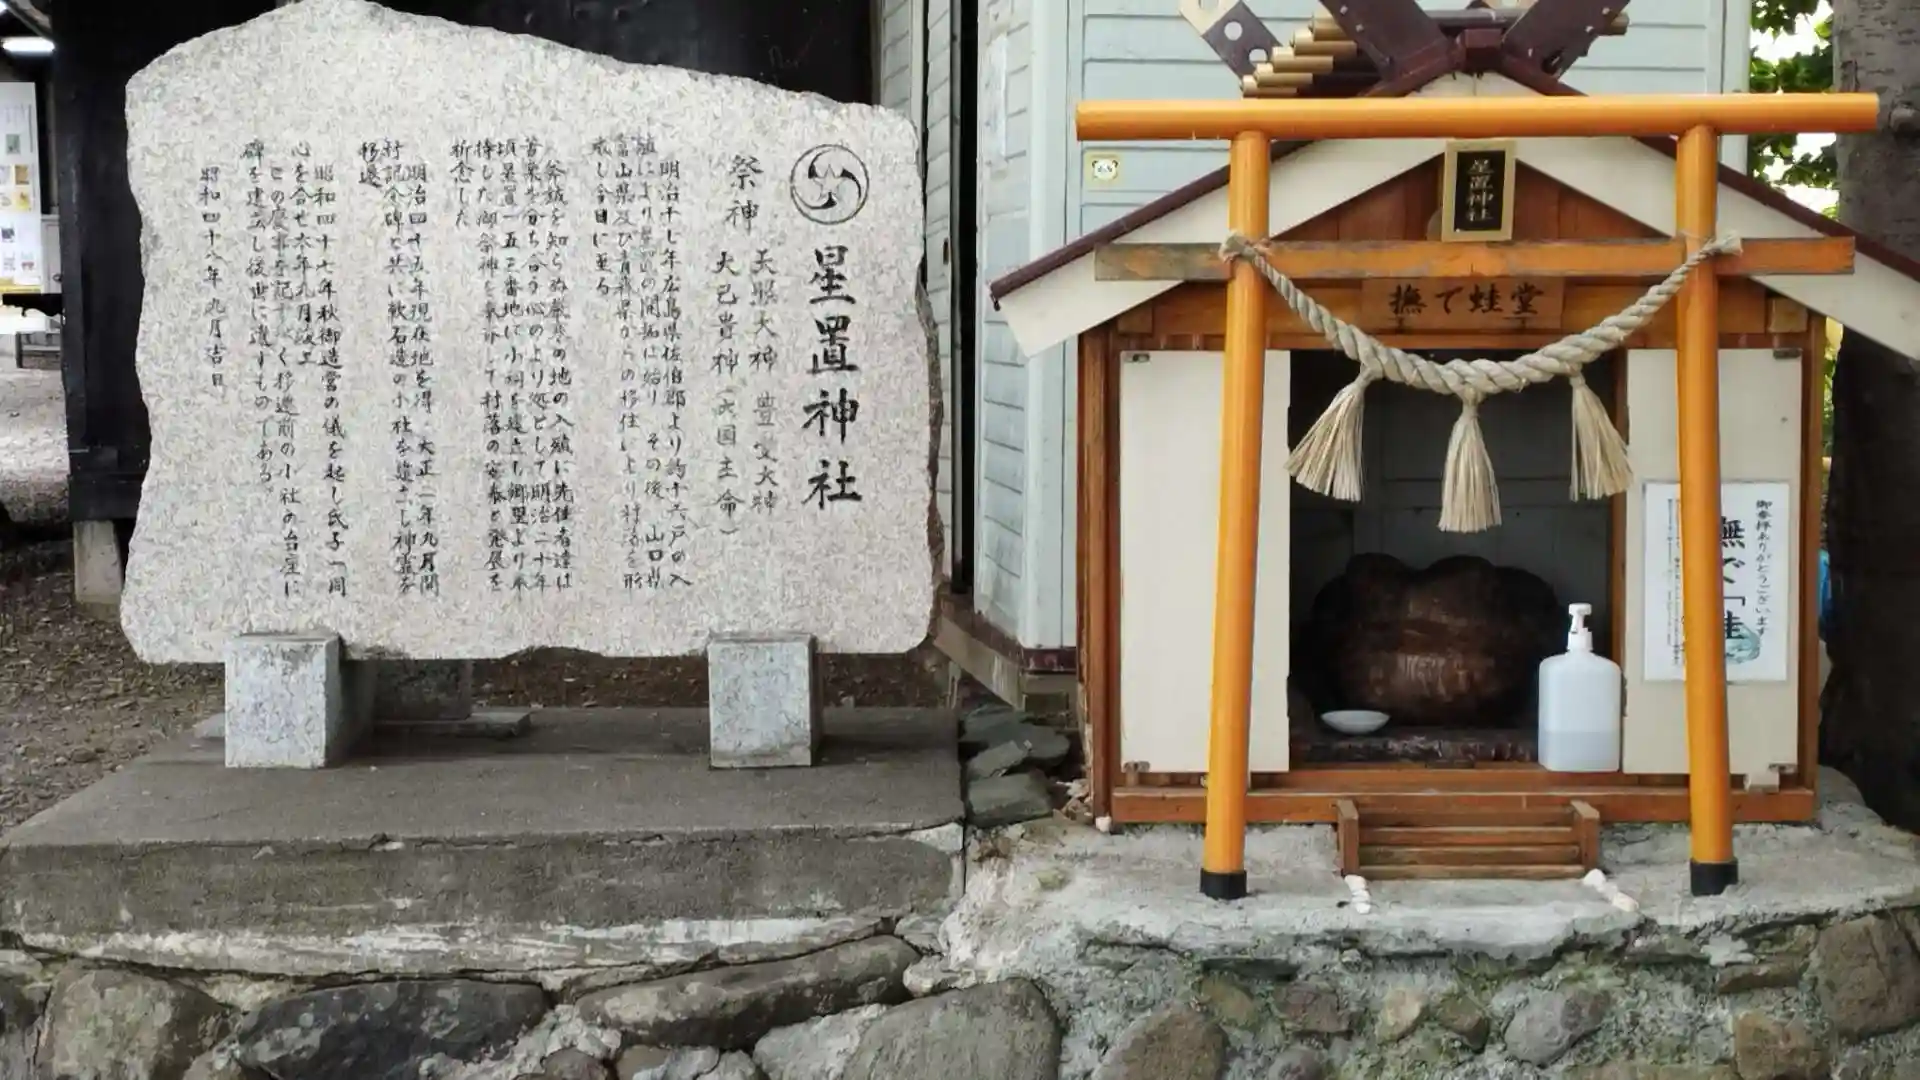 星置神社
祭神
天照大神 豊受大神
大己貴神（大国主命）
明治十七年広島県佐伯郡より約十六戸の入
植により星置の開拓は始り その後 山口県
富山県及び青森県からの移住により村落を形
成し今日に至る
祭政を知らぬ厳寒の地の入植に先住者達は
苦楽を分ち合う心のより処として明治二十年
頃星置一五三番地に小祠を建立し郷里より奉
持した御祭神を氣许して村落の安泰と発展を
祈念した
明治四十五年現在地を得 大正二年九月開
村記念碑と共に軟石造の小社を建立し神霊を
移遷
昭和四十七年秋御造営の儀を起し氏子一同
心を合せ本年九月竣工
この慶事を記すべく移遷前の小社の台座に
碑を建立し後世に遺すものである。
昭和四十八年九月吉日
星置神社
撫で蛙堂
御参拝ありがとうございます
撫で「蛙